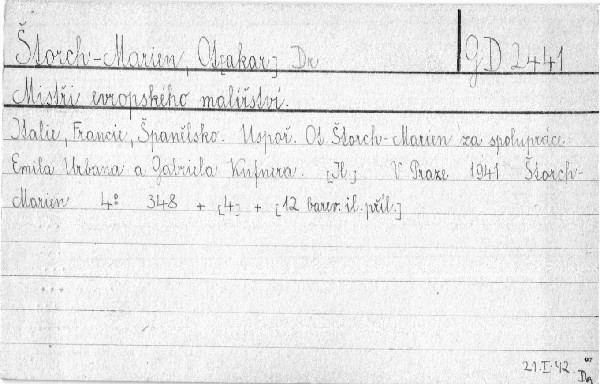 Štorch-Marien, Ot[akar] Dr GD 2441
Mistři evropského malířství.
Italie, Francie, Španělsko. Uspoř. Ot Štorch-Marien za spolupráce
Emila Urbana a Gabriela Kufnera. [Il.] V Praze 1941 Štorch-
Marien 4° 348 + [4] + [12 barev. il. příl.]
21.I.42